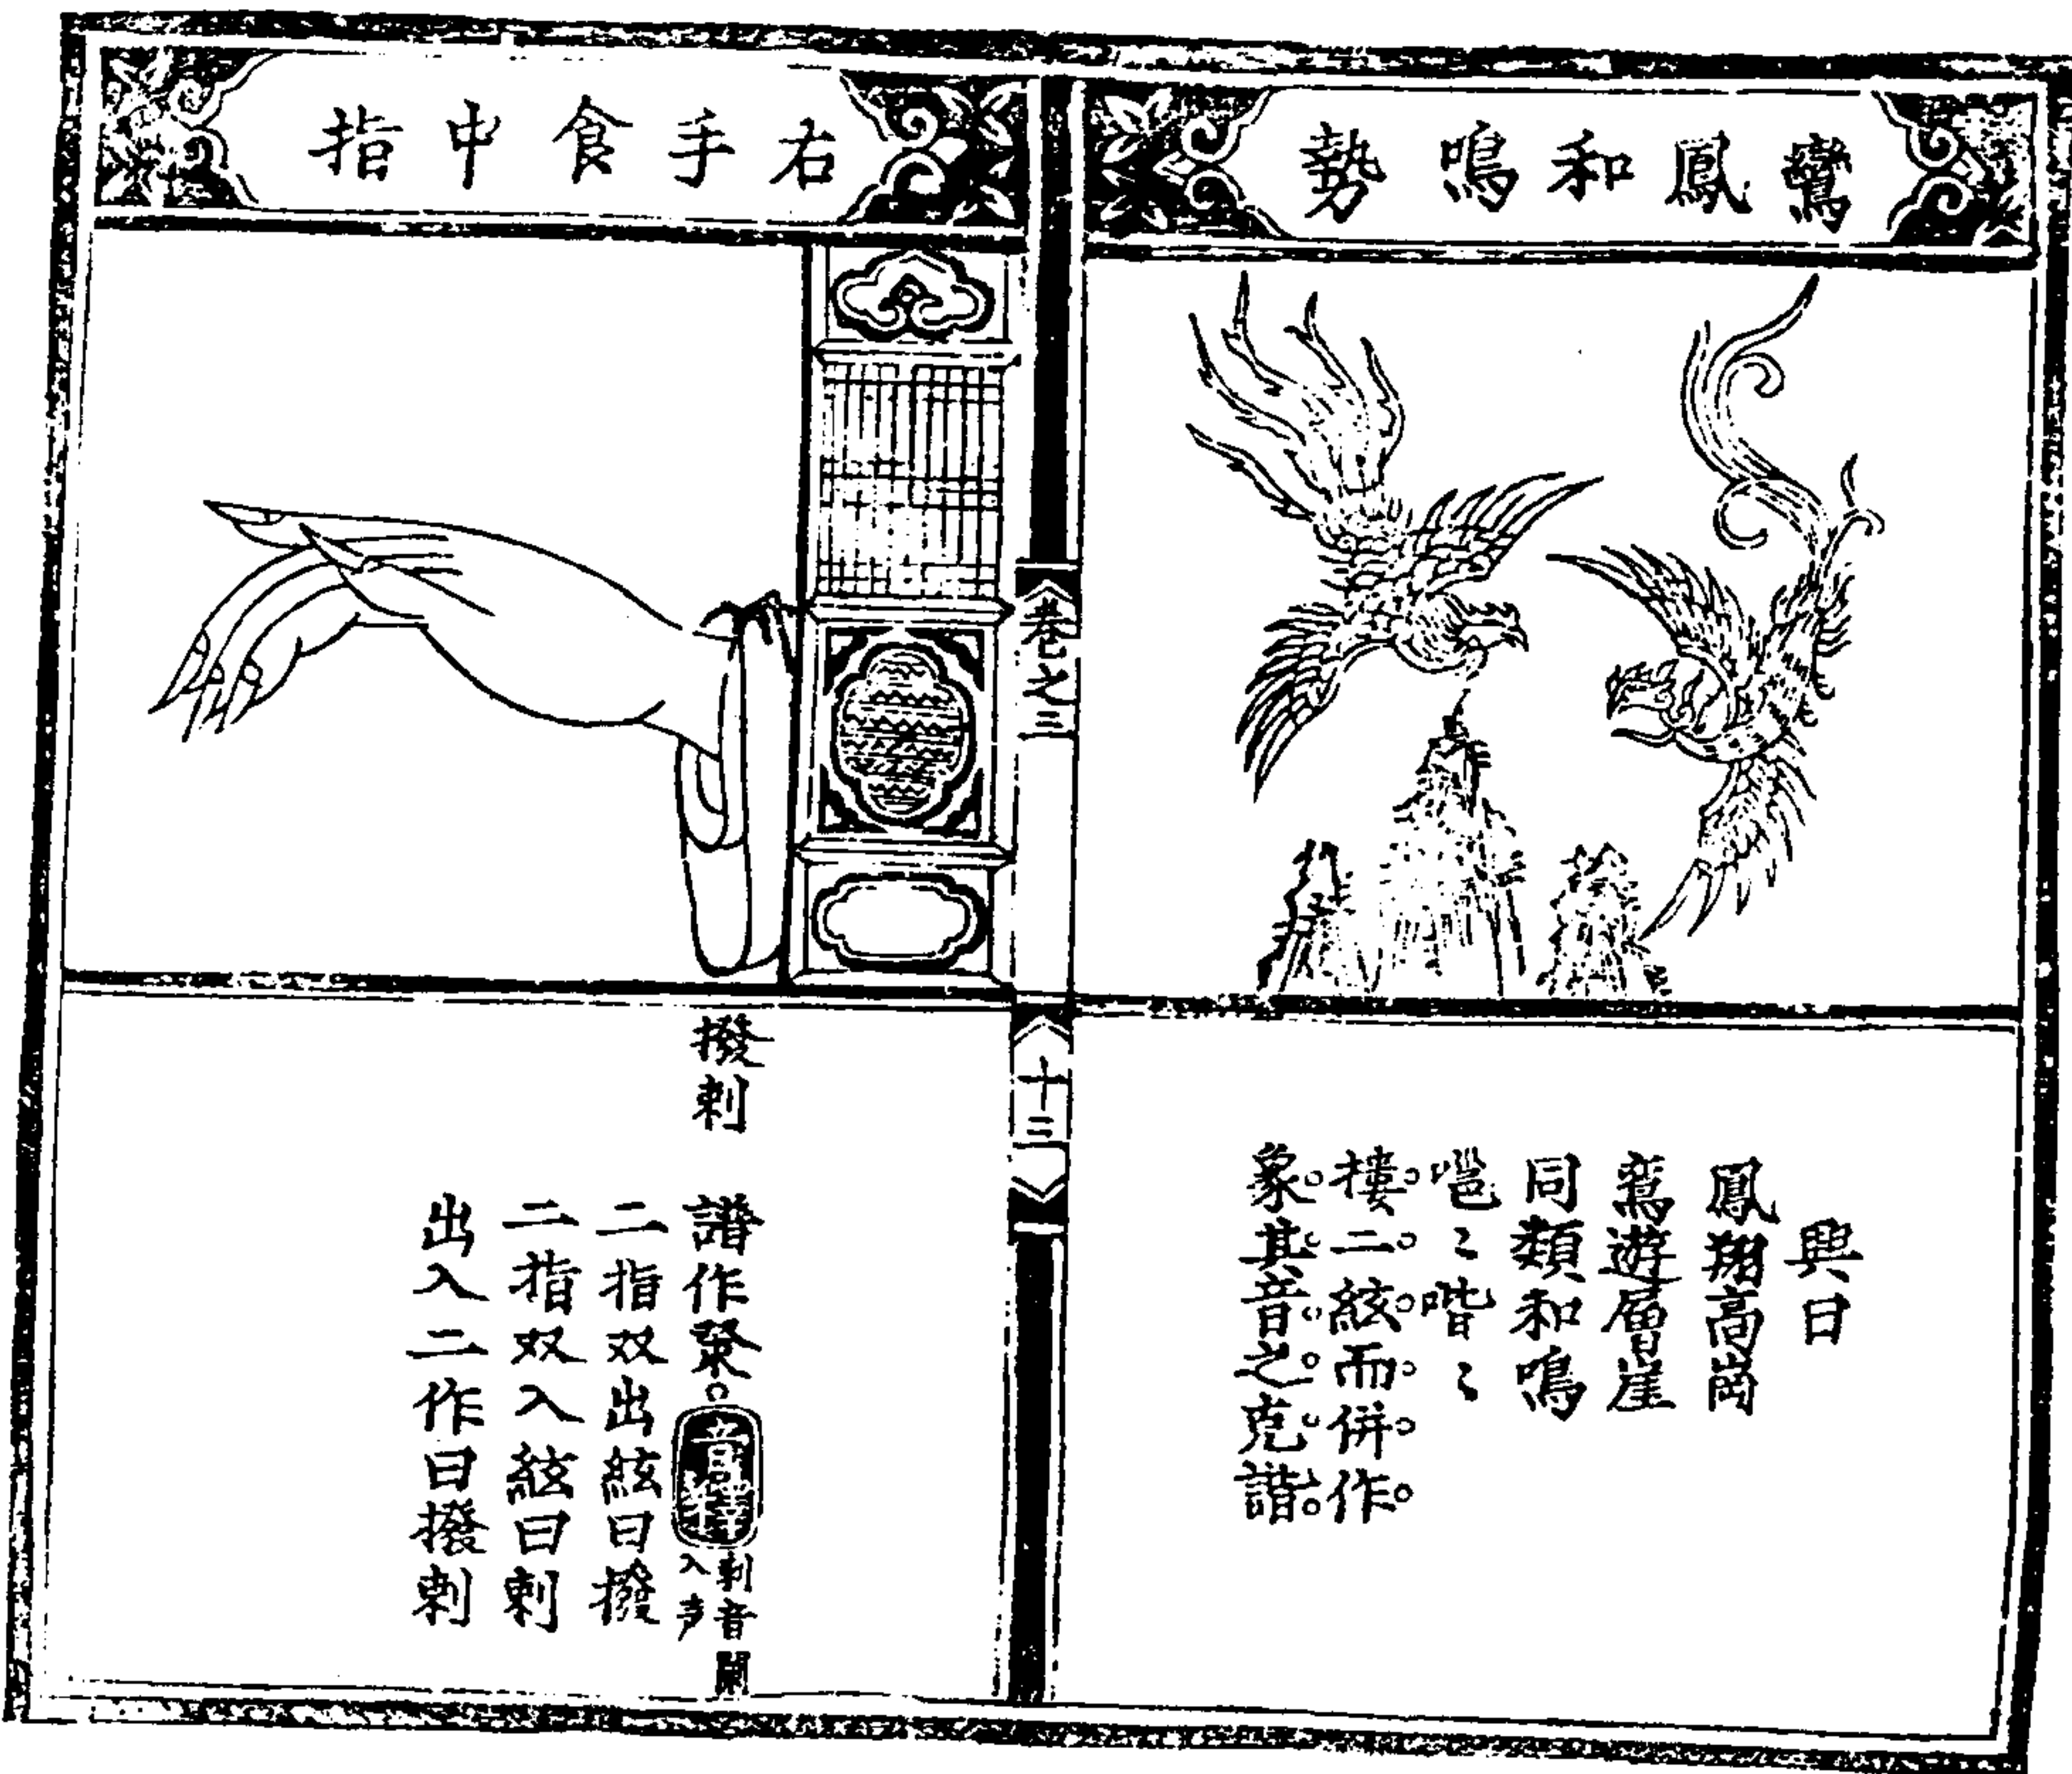 鸞鳳和鳴勢
興曰
鳳翔高崗
鸞遊層崖
同類和鳴
噰〻喈〻
摟二絃而併作
象其音之克諧
卷之三
十三
右手食中指
撥剌
譜作 音釋 剌音闌入声
二指双出絃曰撥
二指双入絃曰剌
出入二作曰撥剌